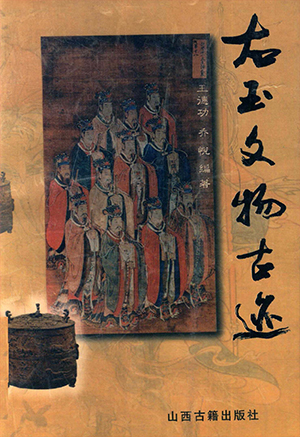 右玉文物古迹
王德功 乔悦 编著
山西古籍出版社